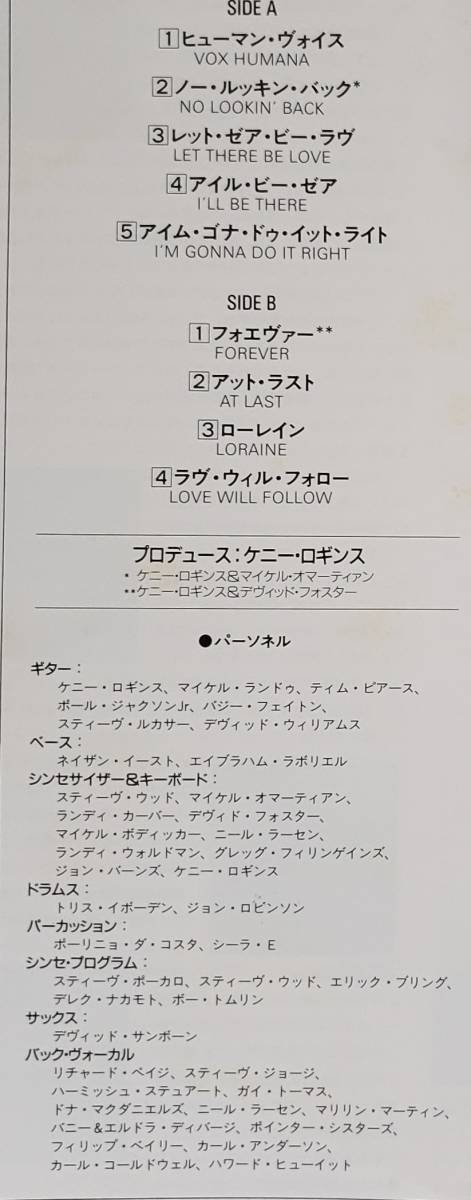 SIDE A
1 ヒューマン・ヴォイス
VOX HUMANA
2 ノー・ルッキン・バック*
NO LOOKIN' BACK
3 レット・ゼア・ビー・ラヴ
LET THERE BE LOVE
4 アイル・ビー・ゼア
I'LL BE THERE
5 アイム・ゴナ・ドゥ・イット・ライト
I'M GONNA DO IT RIGHT
SIDE B
1 フォエヴァー**
FOREVER
2 アット・ラスト
AT LAST
3 ローレイン
LORAINE
4 ラヴ・ウィル・フォロー
LOVE WILL FOLLOW
プロデュース：ケニー・ロギンス
* ケニー・ロギンス&マイケル・オマーティアン
**ケニー・ロギンス&デヴィッド・フォスター
●パーソネル
ギター：
ケニー・ロギンス、マイケル・ランドゥ、ティム・ピアース、
ポール・ジャクソンJr、バジー・フェイトン、
スティーヴ・ルカサー、デヴィッド・ウィリアムス
ベース：
ネイザン・イースト、エイブラハム・ラボリエル
シンセサイザー&キーボード：
スティーヴ・ウッド、マイケル・オマーティアン、
ランディ・カーバー、デヴィド・フォスター、
マイケル・ボディッカー、ニール・ラーセン、
ランディ・ウォルドマン、グレッグ・フィリンゲインズ、
ジョン・バーンズ、ケニー・ロギンス
ドラムス：
トリス・イボーデン、ジョン・ロビンソン
パーカッション：
ポーリニョ・ダ・コスタ、シーラ・E
シンセ・プログラム：
スティーヴ・ポーカロ、スティーヴ・ウッド、エリック・ブリング、
デレク・ナカモト、ボー・トムリン
サックス：
デヴィッド・サンボーン
バック・ヴォーカル
リチャード・ペイジ、スティーヴ・ジョージ、
ハーミッシュ・ステュアート、ガイ・トーマス、
ドナ・マクダニエルズ、ニール・ラーセン、マリリン・マーティン、
バニー&エルドラ・ディバージ、ポインター・シスターズ、
フィリップ・ベイリー、カール・アンダーソン、
カール・コールドウェル、ハワード・ヒューイット